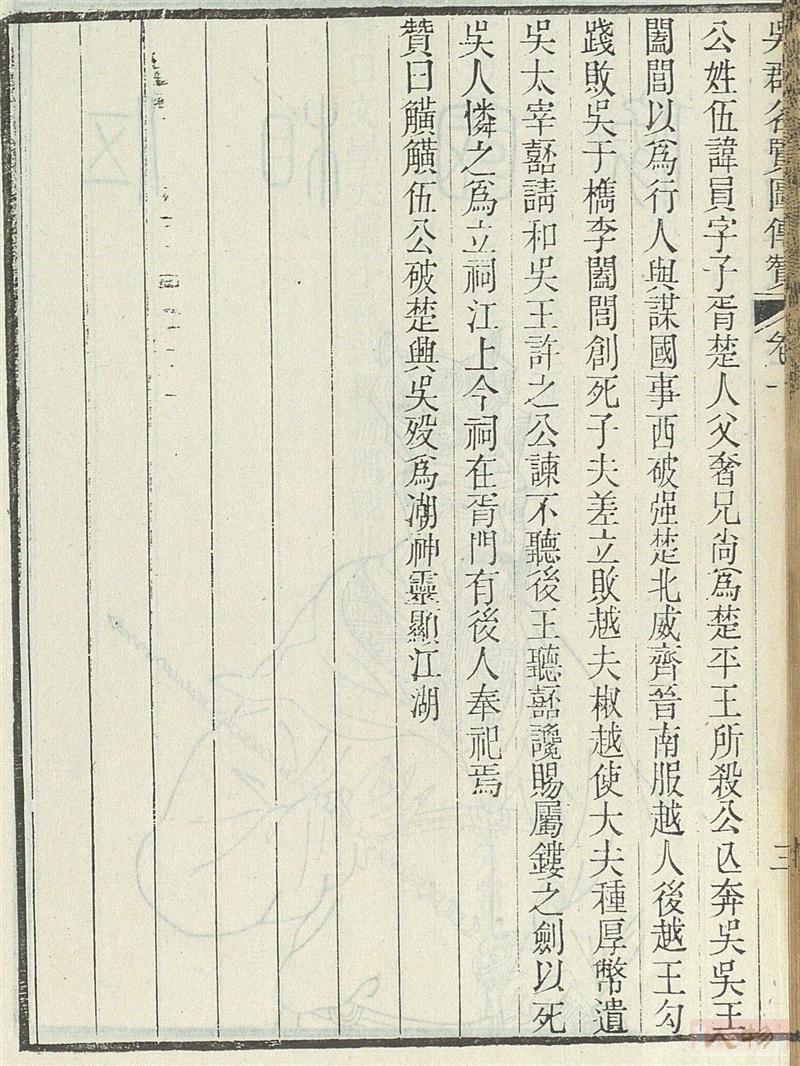 吳郡名賢圖傳贊 卷一 三
公姓伍諱員字子胥楚人父奢兄尙爲楚平王所殺公亾奔吳吳王
闔閭以爲行人與謀國事西破强楚北威齊晉南服越人後越王勾
踐敗吳于檇李闔閭創死子夫差立敗越夫椒越使大夫種厚幣遺
吳太宰嚭請和吳王許之公諫不聽後王聽嚭讒賜屬鏤之劍以死
吳人憐之爲立祠江上今祠在胥門有後人奉祀焉
贊曰觵觵伍公破楚興吳歿爲湖神靈顯江湖